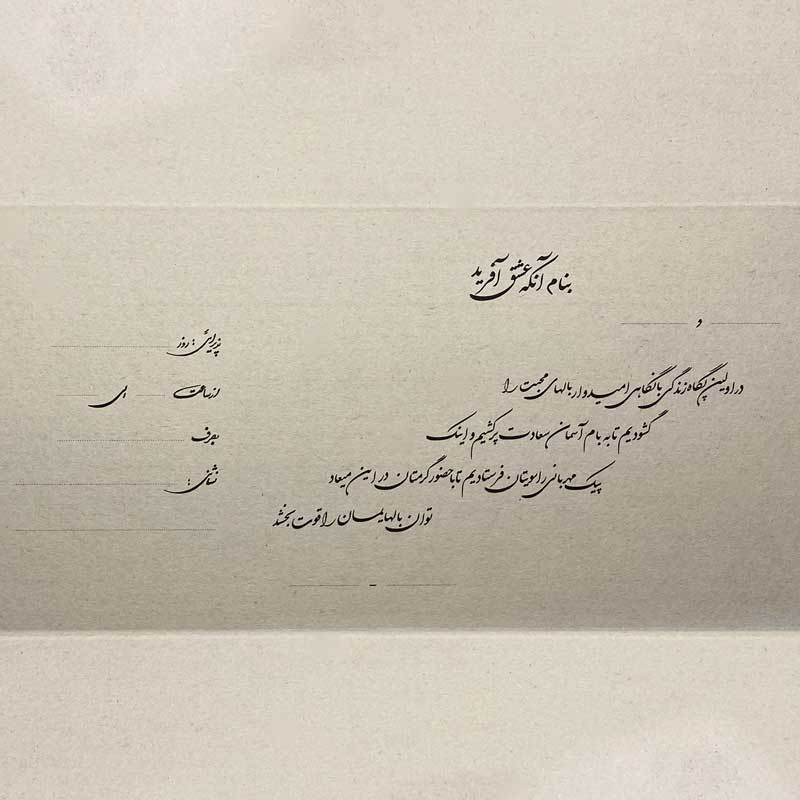 بنام آنکه عشق آفرید
و
در اولین پگاه زندگی با نگاهی امیدوار بالهای محبت را
گشودیم تا به بام آسمان سعادت پرکشیم و اینک
پیک مهربانی را سویتان فرستادیم تا با حضور گرمتان در این میعاد
توان بالهایمان را قوت بخشد
-
پذیرائی : روز
از ساعت الی
بصرف
نشانی :